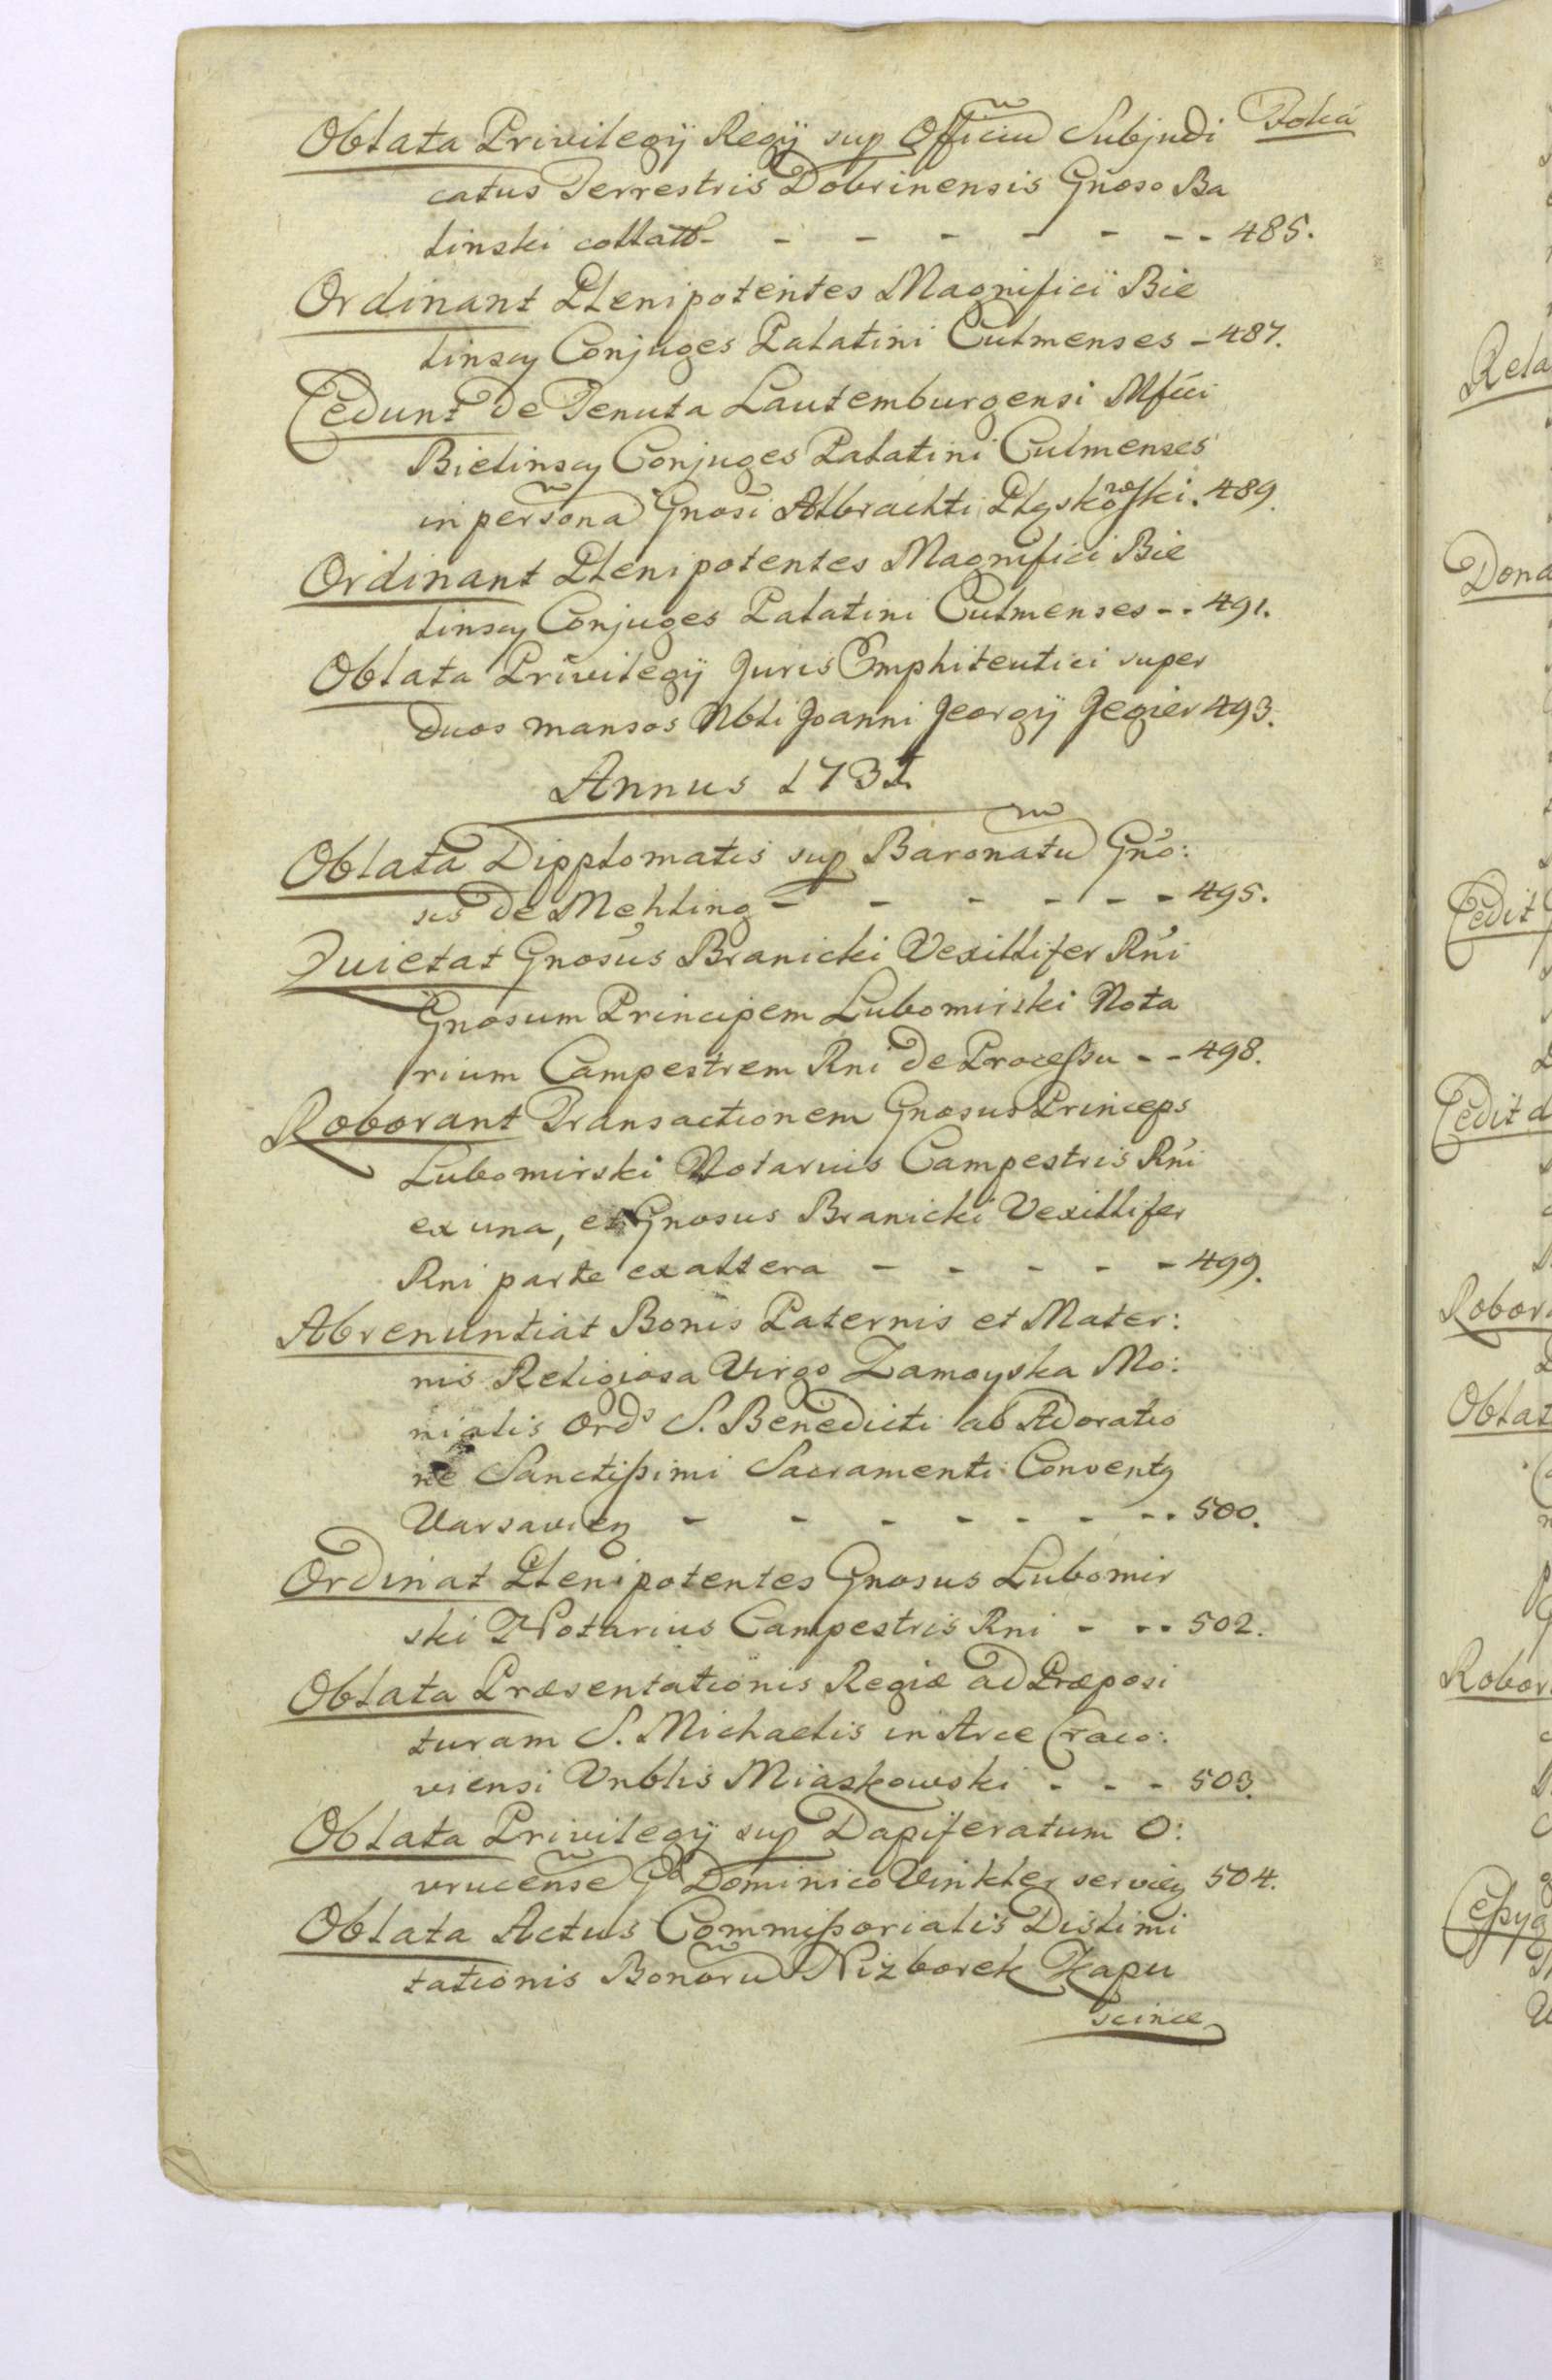 Folia
Oblata Privilegÿ Regÿ sup Officiu Subjudi
catus Terrestris Dobrinensis Gnoso Ba
linski collatt - - - - - - - 485.
Ordinant Plenipotentes Magnifici Bie
linscy Conjuges Palatini Culmenses - 487.
Cedunt de Tenuta Lautemburgensi Mfici
Bielinscy Conjuges Palatini Culmenses
in persona Gnosi Albrachti Plyskowski. 489.
Ordinant Plenipotentes Magnifici Bie
linscy Conjuges Palatini Culmenses - - 491.
Oblata Privilegÿ Juris Emphiteutici super
duos mansos Nbli Joanni Jeorgÿ Jegier 493.
Annus 1731.
Oblata Dipplomatis sup Baronatu Gno:
sis de Mehling - - - - - - 495.
Quietat Gnosus Branicki Vexillifer Rni
Gnosum Principem Lubomirski Nota
rium Campestrem Rni de Processu - - 498.
Roborant Transactionem Gnosus Princeps
Lubomirski Notarius Campestris Rni
ex una, et Gnosus Branicki Vexillifer
Rni parte ex altera - - - - - 499.
Abrenuntiat Bonis Paternis et Mater:
nis Religiosa Virgo Zamoyska Mo:
nialis Ords S. Benedicti ab Adoratio
ne Sanctissimi Sacramenti Convent9
Varsavien - - - - - - - - 500.
Ordinat Plenipotentes Gnosus Lubomir
ski Notarius Campestris Rni - - - 502.
Oblata Præsentationis Regiæ ad Præposi
turam S. Michaelis in Arce Craco:
viensi Vnblis Miaskowski - - - 503.
Oblata Privilegÿ sup Dapiferatum O:
vrucense Dominico Vinkler servien 504.
Oblata Actus Commissorialis Dislimi
tationis Bonoru Nizborek Kapu
scince
Rela
Dona
Cedit
Cedit d
Robor
Oblat
Robor